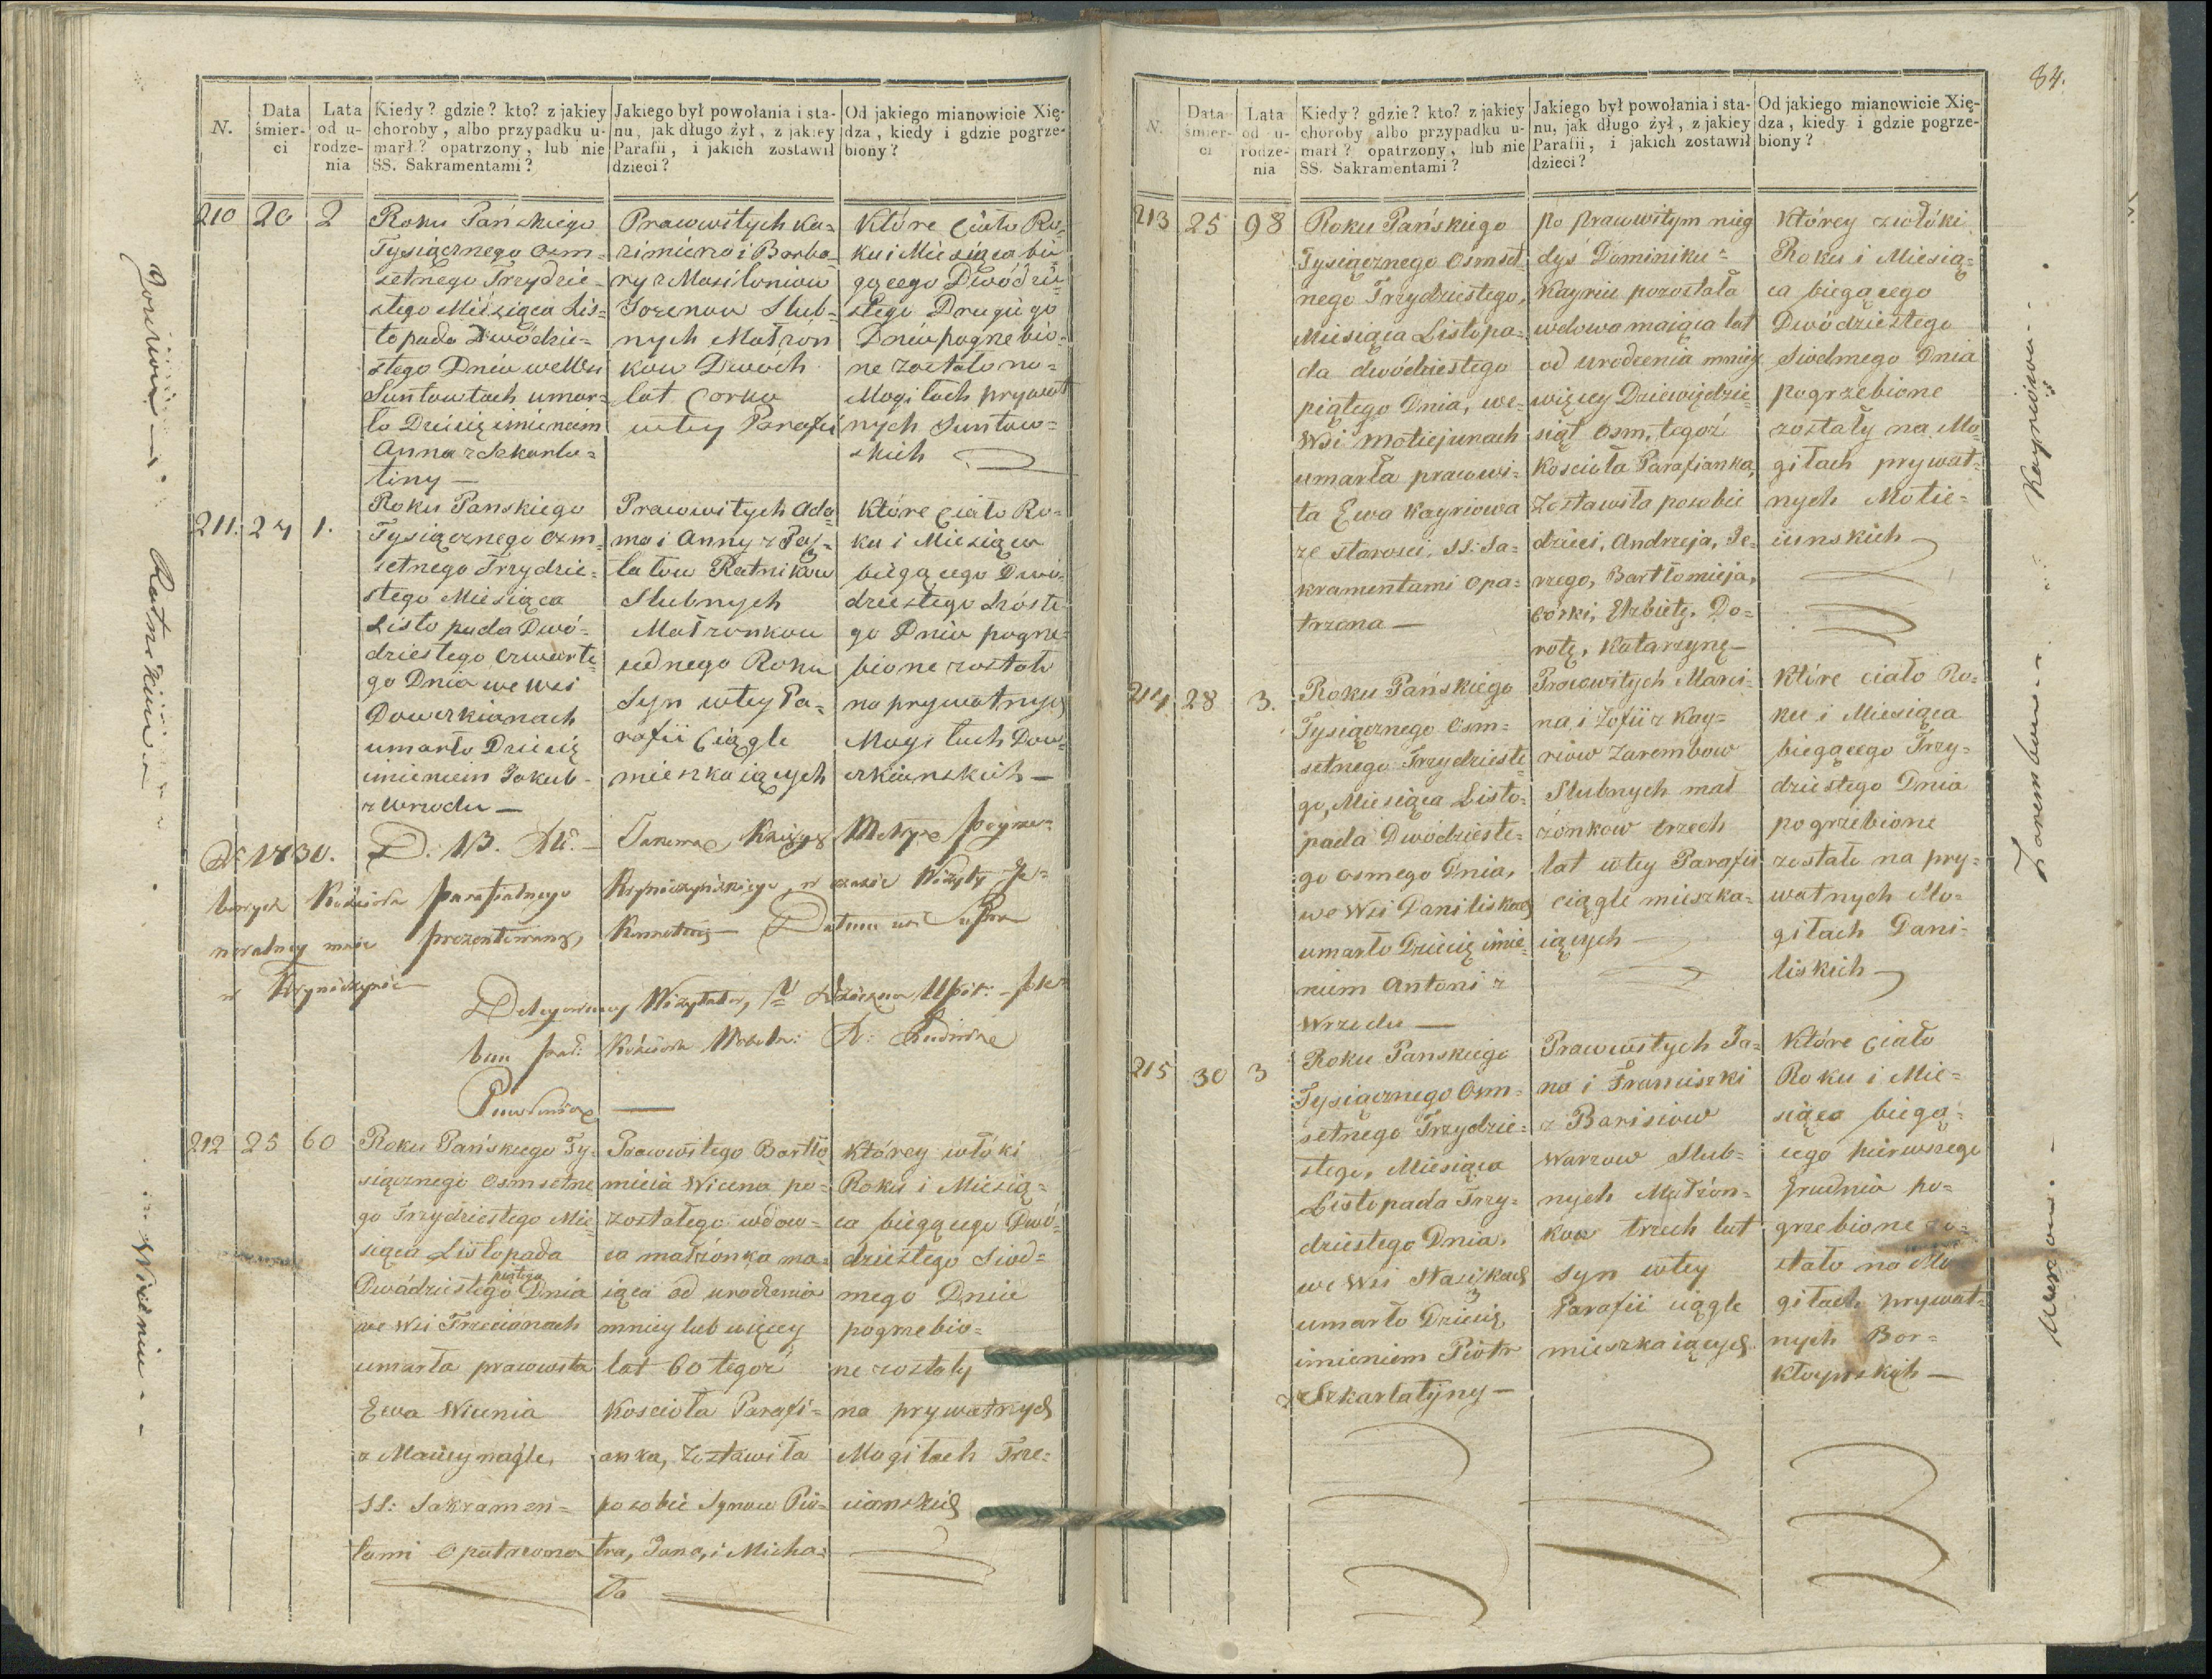 84.
N.
Data śmier-ci
Lata od u-rodze-nia
Kiedy? gdzie? kto? z jakiey
choroby, albo przypadku u-
marł? opatrzony, lub nie
SS. Sakramentami?
Jakiego był powołania i sta-
nu, jak długo żył, z jakiey
Parafii, i jakich zostawił
dzieci?
Od jakiego mianowicie Xię-
dza, kiedy i gdzie pogrze-
biony?
210
20
2
Roku Pańskiego
Tysiącznego Osm-
setnego Trzydzie-
stego Miesiąca Lis-
topada Dwódzie-
stego Dnia we Wsi
Suntowtach umar-
ło Dziecię imieniem
Anna z Szkarla-
tiny —
Prawowitych Ka-
zimierza i Barba-
ry z Masiloniów
Slub-
nych Małżon
kow Dwóch
lat Corka
wtey Parafii
Które Ciało Ro-
ku i Miesiąca bie
gącego Dwódzie-
stego Drugiego
Dnia pogrzebio-
ne zostało na-
Mogiłach prywat
nych Suntow-
skich
211.
24
1.
Roku Panskiego
Tysiącznego Osm-
setnego Trzydzie-
stego Miesiąca
Listopada Dwó-
dziestego Czwarte-
go Dnia we Wsi
Dowerkianach
umarło Dziecię
imieniem Jakub
z Wrzodu —
Prawowitych Ada-
ma i Anny z
Ratnikow
Slubnych
Małżonkow
iednego Roku
Syn wtey Pa-
rafii Ciągle
mieszkaiących
Które Ciało Ro-
ku i Miesiąca
biegącego Dwó-
dziestego Szoste
go Dnia pogrze-
bione zostało
na prywatnych
Mogiłach Dow-
erkianskich —
R. 1830.
Kościoła parafialnego
prezentowaną,
Delegowany Wizytator,
212
25
60
Roku Pańskiego Ty-
siącznego Osmsetne
go Trzydziestego Mie
siąca Listopada
piątego
Dwódziestego Dnia
we Wsi Trzecianach
umarła prawowita
Ewa Wicenia
nagle,
SS: Sakramen-
tami Opatrzona
Prawowitego Bartło
mieia Wicena po-
zostałego wdow-
ca małżonka ma-
iąca od urodzenia
mniey lub więcey
lat 60 tegoż
Kościoła Parafi-
anka, Zostawiła
po sobie Synow Pio-
tra, Jana, i Micha-
ła
Którey zwłóki
Roku i Miesią-
ca biegącego Dwó-
dziestego Siod-
mego Dnia
pogrzebio-
ne zostały
na prywatnych
Mogiłach Trze-
cianskich
Ratnikiewa
N.
Data śmier-ci
Lata od u-rodze-nia
Kiedy? gdzie? kto? z jakiey
choroby albo przypadku u-
marł? opatrzony, lub nie
SS. Sakramentami?
Jakiego był powołania i sta-
nu, jak długo żył, z jakiey
Parafii, i jakich zostawił
dzieci?
Od jakiego mianowicie Xię-
dza, kiedy i gdzie pogrze-
biony?
213
25
98
Roku Pańskiego
Tysiącznego Osmset-
nego Trzydziestego,
Miesiąca Listopa-
da dwódziestego
piątego Dnia, we-
Wsi Motiejunach
umarła prawowi-
ta Ewa Kayriowa
ze starosci, SS: Sa-
kramentami Opa-
trzona —
po prawowitym nieg
dyś Dominiku
Kayriu pozostała
wdowa maiąca lat
od urodzenia mniey
więcey Dziewiędzie-
siąt Osm, tegoż
Kościoła Parafianka,
Zostawiła po sobie
dzieci, Andrzeja, Je-
rzego, Bartłomieja,
Corki, Elzbietę, Do-
rotę, Katarzynę —
Którey zwłóki
Roku i Miesią-
ca biegącego
Dwódziestego
Siodmego Dnia
pogrzebione
zostały na Mo-
giłach prywat-
nych Motie-
iunskich
214
28
3.
Roku Pańskiego
Tysiącznego Osm-
setnego Trzydzieste-
go, Miesiąca Listo-
pada Dwódzieste-
go Osmego Dnia,
we Wsi Daniliskach
umarło Dziecię imie-
niem Antoni z
Wrzodu —
Prawowitych Marci-
na i Zofii z Kay-
riów Zarembow
Slubnych mał
żonkow trzech
lat wtey Parafii
ciągle mieszka-
iących
Które ciało Ro-
ku i Miesiąca
biegącego Trzy-
dziestego Dnia
pogrzebione
zostało na pry-
watnych Mo-
giłach Dani-
liskich
215
30
3
Roku Panskiego
Tysiącznego Osm-
setnego Trzydzie-
stego, Miesiąca
Listopada Trzy-
dziestego Dnia,
we Wsi Stasiszkach
umarło Dziecię
imieniem Piotr
z Szkarlatyny —
Prawowitych Ja-
na i Franciszki
z Barisiow
Warzow Slub-
nych Małżon-
kow trzech lat
Syn wtey
Parafii ciągle
mieszkaiących
Które Ciało
Roku i Mie-
siąca biegą-
cego pierwszego
Grudnia po-
grzebione zo-
stało na Mo
giłach prywat-
nych Bor-
Kayriowa